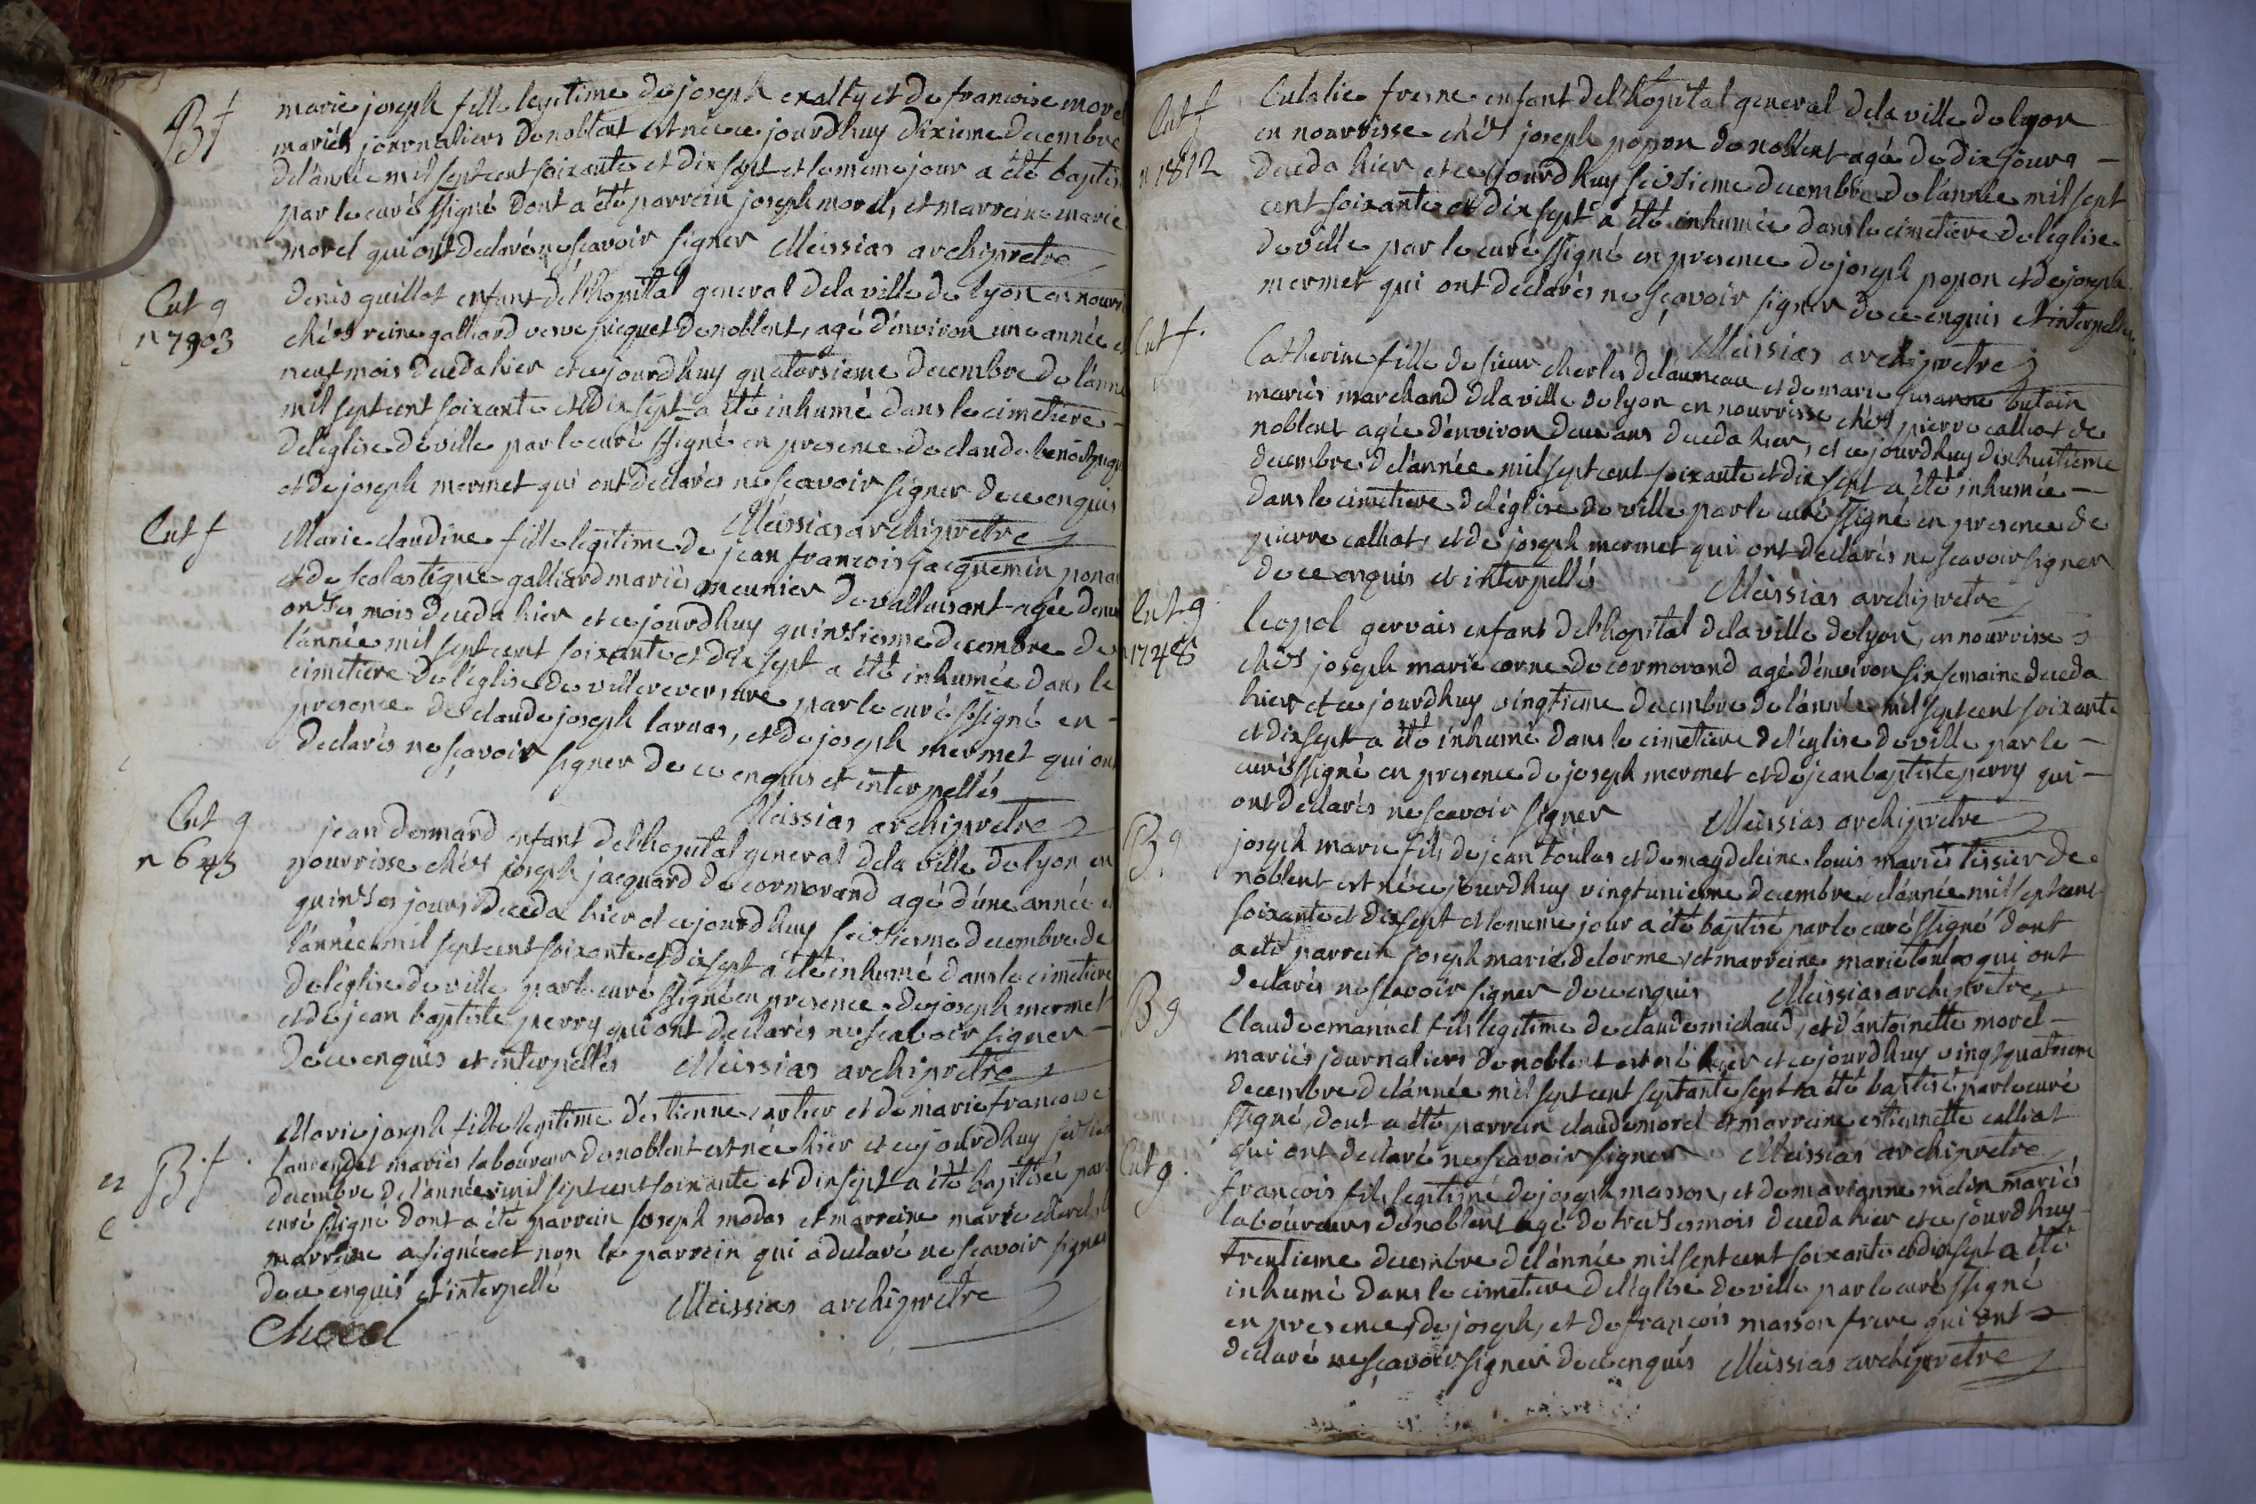 B f
marie joseph fille legitime de joseph exalty et de francoise morel
mariés journaliers de noblent est née ce jourdhuy dixieme decembre
de l'année mil sept cent soixante et dix sept et le meme jour a été baptisé
par le curé ssigné dont a été parrein joseph morel, et marreine marie
morel qui ont declaré ne scavoir signer Meissias archipretre
Ent g
n 7903
denis guillot enfant de l'hopital general de la ville de lyon en nourri
chés reine galliard veuve piequet de noblent, agé d'environ une année et
neuf mois deceda hier et ce jourdhuy quatorsieme decembre de l'année
mil sept cent soixante et dix sept a été inhumé dans le cimetiere
de l'eglise de ville par le curé ssigné en presence de claude benoit
et de joseph mermet qui ont declarés ne scavoir signer de ce enquis
Meissias archipretre
Ent f
Marie claudine fille legitime de jean francois jacquemin
et de scolastique galliard mariés meunier de valluisant agée
onses mois deceda hier et ce jourdhuy quinsieme decembre de
l'année mil sept cent soixante et dix sept a été inhumée dans le
cimetiere de l'eglise de villereversure par le curé ssigné en
presence de claude joseph laruas, et de joseph mermet qui ont
declarés ne scavoir signer de ce enquis et interpellés
Meissias archipretre
Ent g
n 645
jean desmard enfant de l'hopital general de la ville de lyon en
nourrisse chés joseph jacquard de cormorand agé d'une année et
quinses jours deceda hier et ce jourdhuy seisieme decembre de
l'année mil sept cent soixante et dix sept a été inhumé dans le cimetiere
de l'eglise de ville par le curé ssigné en presence de joseph mermet
et de jean baptiste perry qui ont declarés ne scavoir signer
de ce enquis et interpellés Meissias archipretre
B f
Marie joseph fille legitime d'estienne cartier et de marie francoise
mariés laboureur de noblent est née hier et ce jourdhuy
decembre de l'année mil sept cent soixante et dix sept a été baptisée par
curé ssigné dont a été parrein joseph modas et marreine marie
marreine a signée et non le parrein qui a declaré ne scavoir signer
de ce enquis et interpellé
Meissias archipretre
Ent f
n 1812
Eulalie fresne enfant de l'hopital general de la ville de lyon
en nourrisse chés joseph popon de noblent agée de dix jours
deceda hier et ce jourdhuy seisieme decembre de l'année mil sept
cent soixante et dix sept a été inhumée dans le cimetiere de l'eglise
de ville par le curé ssigné en presence de joseph popon et de joseph
mermet qui ont declarés ne scavoir signer de ce enquis et interpellés
Meissias archipretre
Ent f
Catherine fille de sieur charles delaumeau et de marie susanne butoin
mariés marchand de la ville de lyon en nourrisse chés pierre calliat de
noblent agée d'environ deux ans deceda hier, et ce jourdhuy dixhuitieme
decembre de l'année mil sept cent soixante et dix sept a été inhumée
dans le cimetiere de l'eglise de ville par le curé ssigné en presence de
pierre calliat, et de joseph mermet qui ont declarés ne scavoir signer
de ce enquis et interpellés Meissias archipretre
Ent g
1748
leopol gervais enfant de l'hopital de la ville de lyon, en nourrisse
chés joseph marie corne de cormorand agé d'environ six semaine deceda
hier et ce jourdhuy vingtieme decembre de l'année mil sept cent soixante
et dix sept a été inhumé dans le cimetiere de l'eglise de ville par le
curé ssigné en presence de joseph mermet et de jean baptiste perry qui
ont declarés ne scavoir signer Meissias archipretre
B g
joseph marie fils de jean toulas et de magdeleine louis mariés tissier de
noblent est né ce jourdhuy vingt unieme decembre de l'année mil sept cent
soixante et dix sept et le meme jour a été baptisé par le curé ssigné dont
a été parrein joseph marie delorme, et marreine marie toulas qui ont
declarés ne scavoir signer de ce enquis Meissias archipretre
B g
Claude emanuel fils legitime de claude michaud, et d'antoinette morel
mariés journaliers de noblent est né hier et ce jourdhuy vingt quatrieme
decembre de l'année mil sept cent septante sept a été baptisé par le curé
ssigné, dont a été parrein claude morel et marreine estiennette calliat
qui ont declaré ne scavoir signer Meissias archipretre
Ent g
francois fils legitimé de joseph masson, et de marianne melin mariés
laboureurs de noblent agé de treises mois deceda hier et ce jourdhuy
trentieme decembre de l'année mil sept cent soixante et dix sept a été
inhumé dans le cimetiere de l'eglise de ville par le curé ssigné
en presence de joseph, et de françois masson frere qui ont
declaré ne sçavoir signer de ce enquis Meissias archipretre